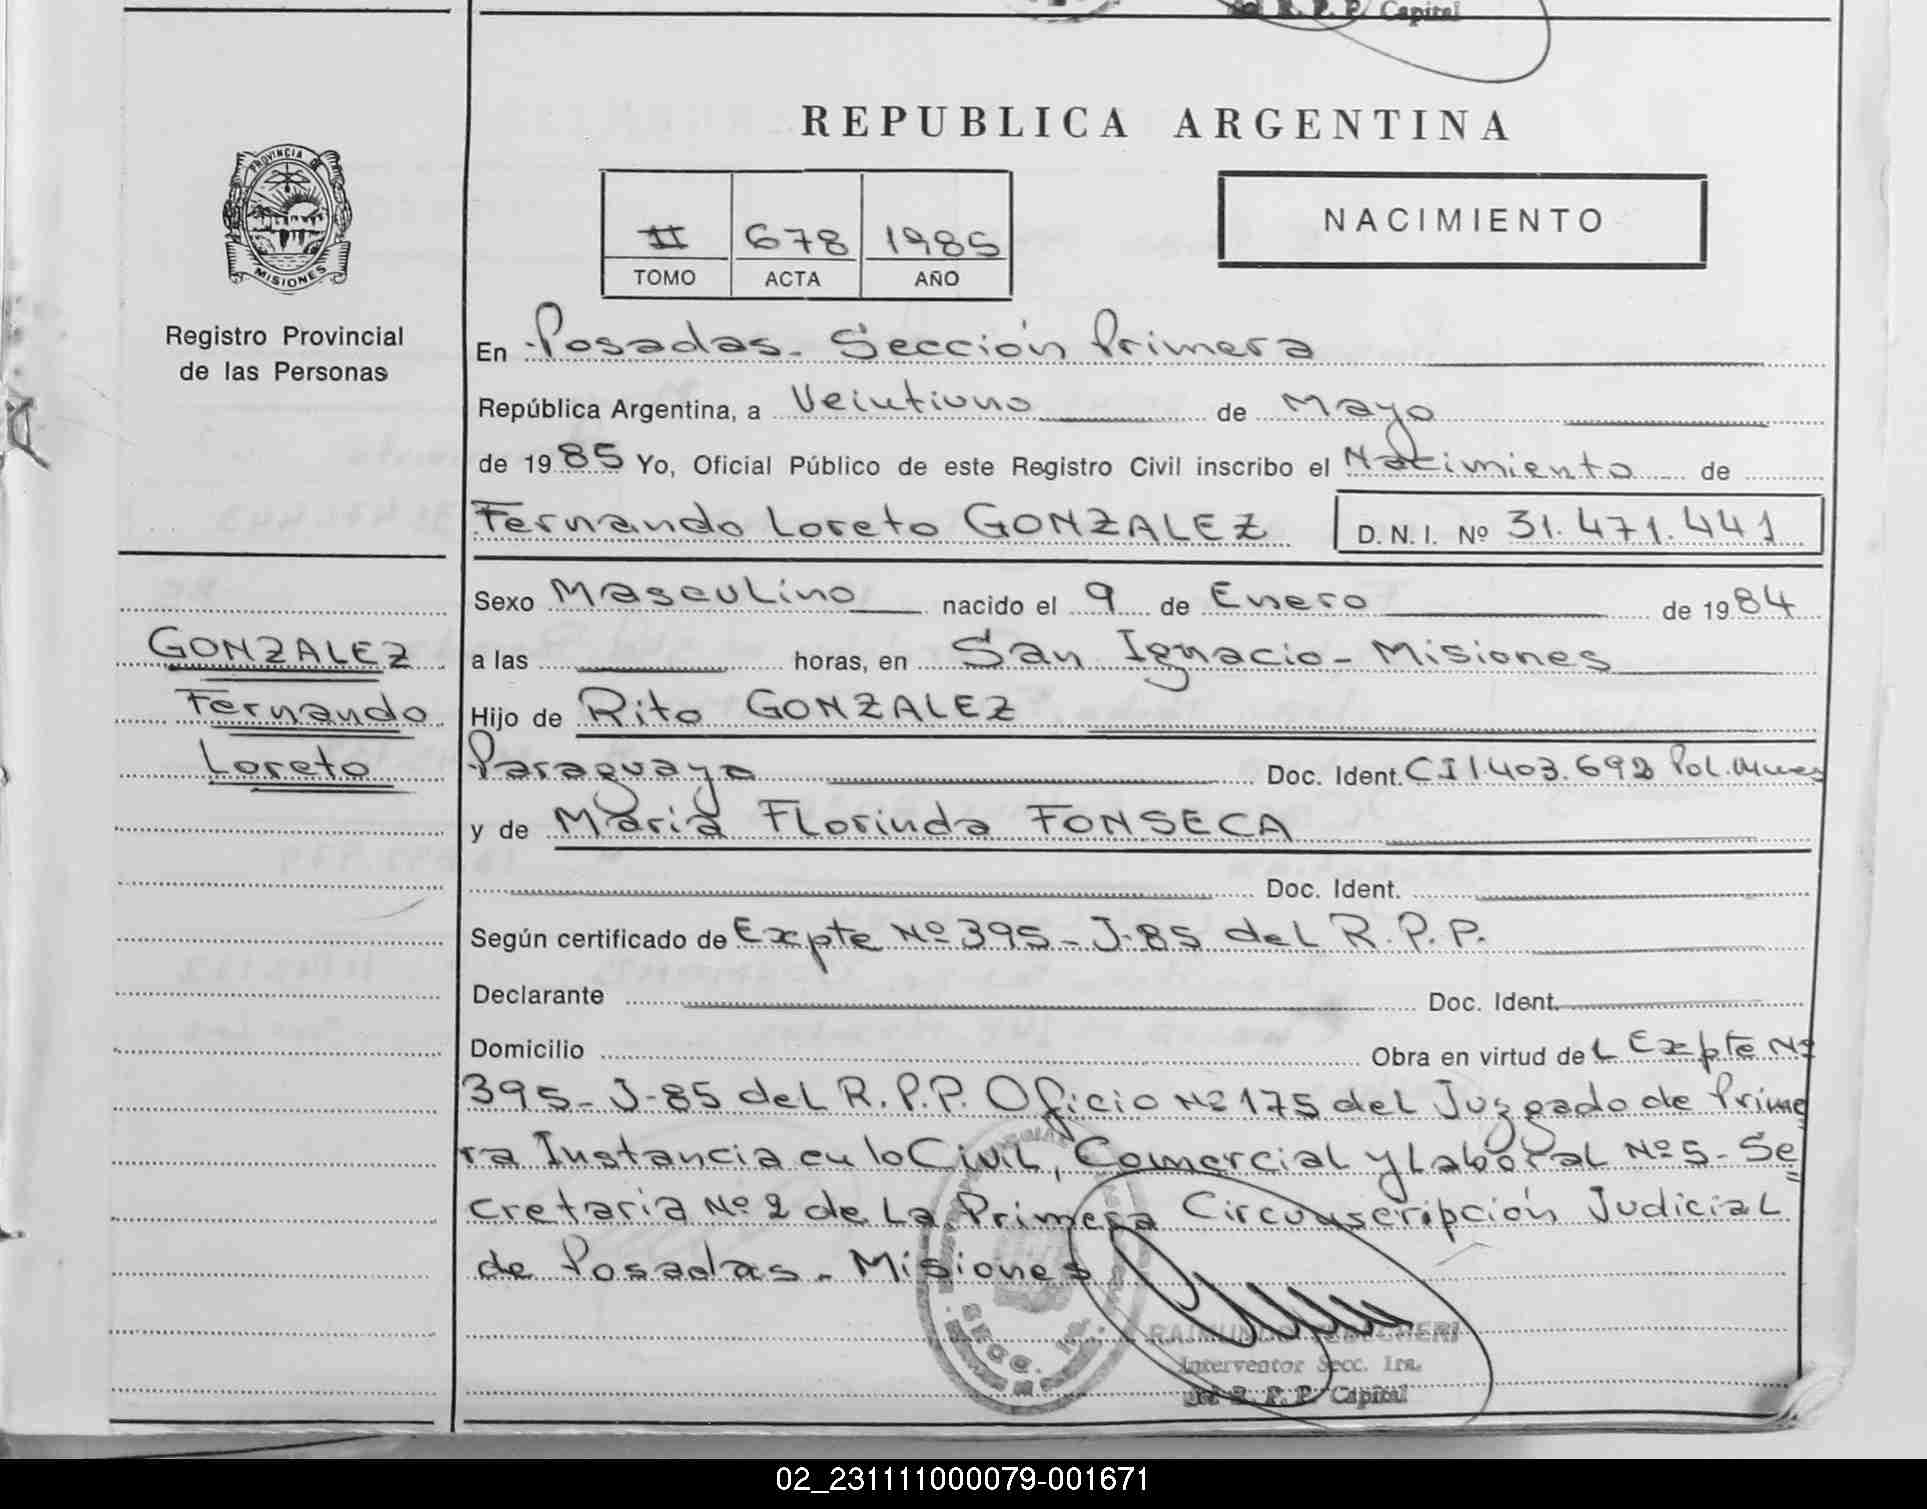 del R. P. P. Capital
REPUBLICA ARGENTINA
PROVINCIA DE
MISIONES
Registro Provincial
de las Personas
II 678 1985
TOMO ACTA AÑO
NACIMIENTO
En Posadas - Sección Primera
República Argentina, a Veintiuno de Mayo
de 1985 Yo, Oficial Público de este Registro Civil inscribo el Nacimiento de
Fernando Loreto GONZALEZ D. N. I. Nº 31.471.441
Sexo Masculino nacido el 9 de Enero de 1984
GONZALEZ
Fernando
Loreto
a las horas, en San Ignacio - Misiones
Hijo de Rito GONZALEZ
Paraguayo Doc. Ident. CI 1.403.692 Pol. Mnes
y de Maria Florinda FONSECA
Doc. Ident.
Según certificado de Expte Nº 395 - J-85 del R. P. P.
Declarante Doc. Ident.
Domicilio Obra en virtud del Expte Nº
395 - J-85 del R. P. P. Oficio Nº 175 del Juzgado de Prime
ra Instancia en lo Civil, Comercial y Laboral Nº 5 - Se
cretaria Nº 2 de La Primera Circunscripción Judicial
de Posadas - Misiones
SECC. 1ra.
RAIMUNDO
Interventor Secc. 1ra.
del R. P. P. Capital
02_231111000079-001671